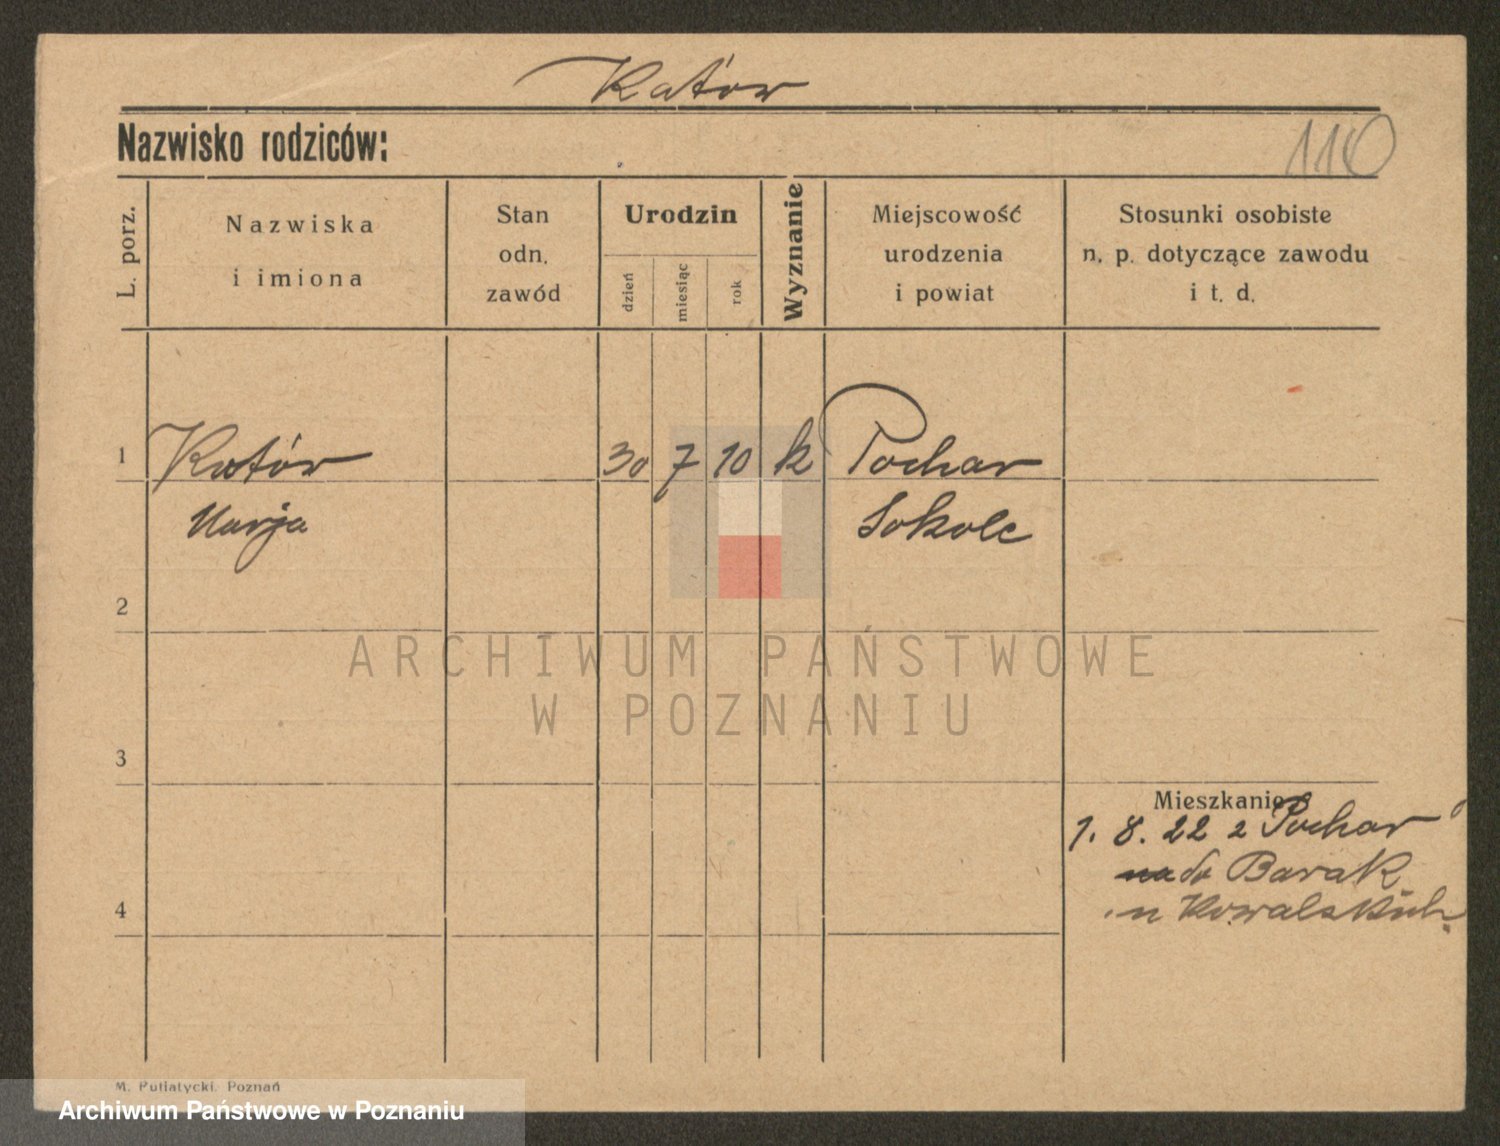 Katór
Nazwisko rodziców:
110
L. porz.
Nazwiska
i imiona
Stan
odn.
zawód
Urodzin
dzień
miesiąc
rok
Wyznanie
Miejscowość
urodzenia
i powiat
Stosunki osobiste
n. p. dotyczące zawodu
i t. d.
1
Katór
30
7
10
k
Pochar
Marja
Sokole
2
ARCHIWUM PAŃSTWOWE
W POZNANIU
3
Mieszkanie
1. 8. 22 z Pochar
na do Barak
u Kowalskich
4
M. Putiatycki. Poznań
Archiwum Państwowe w Poznaniu